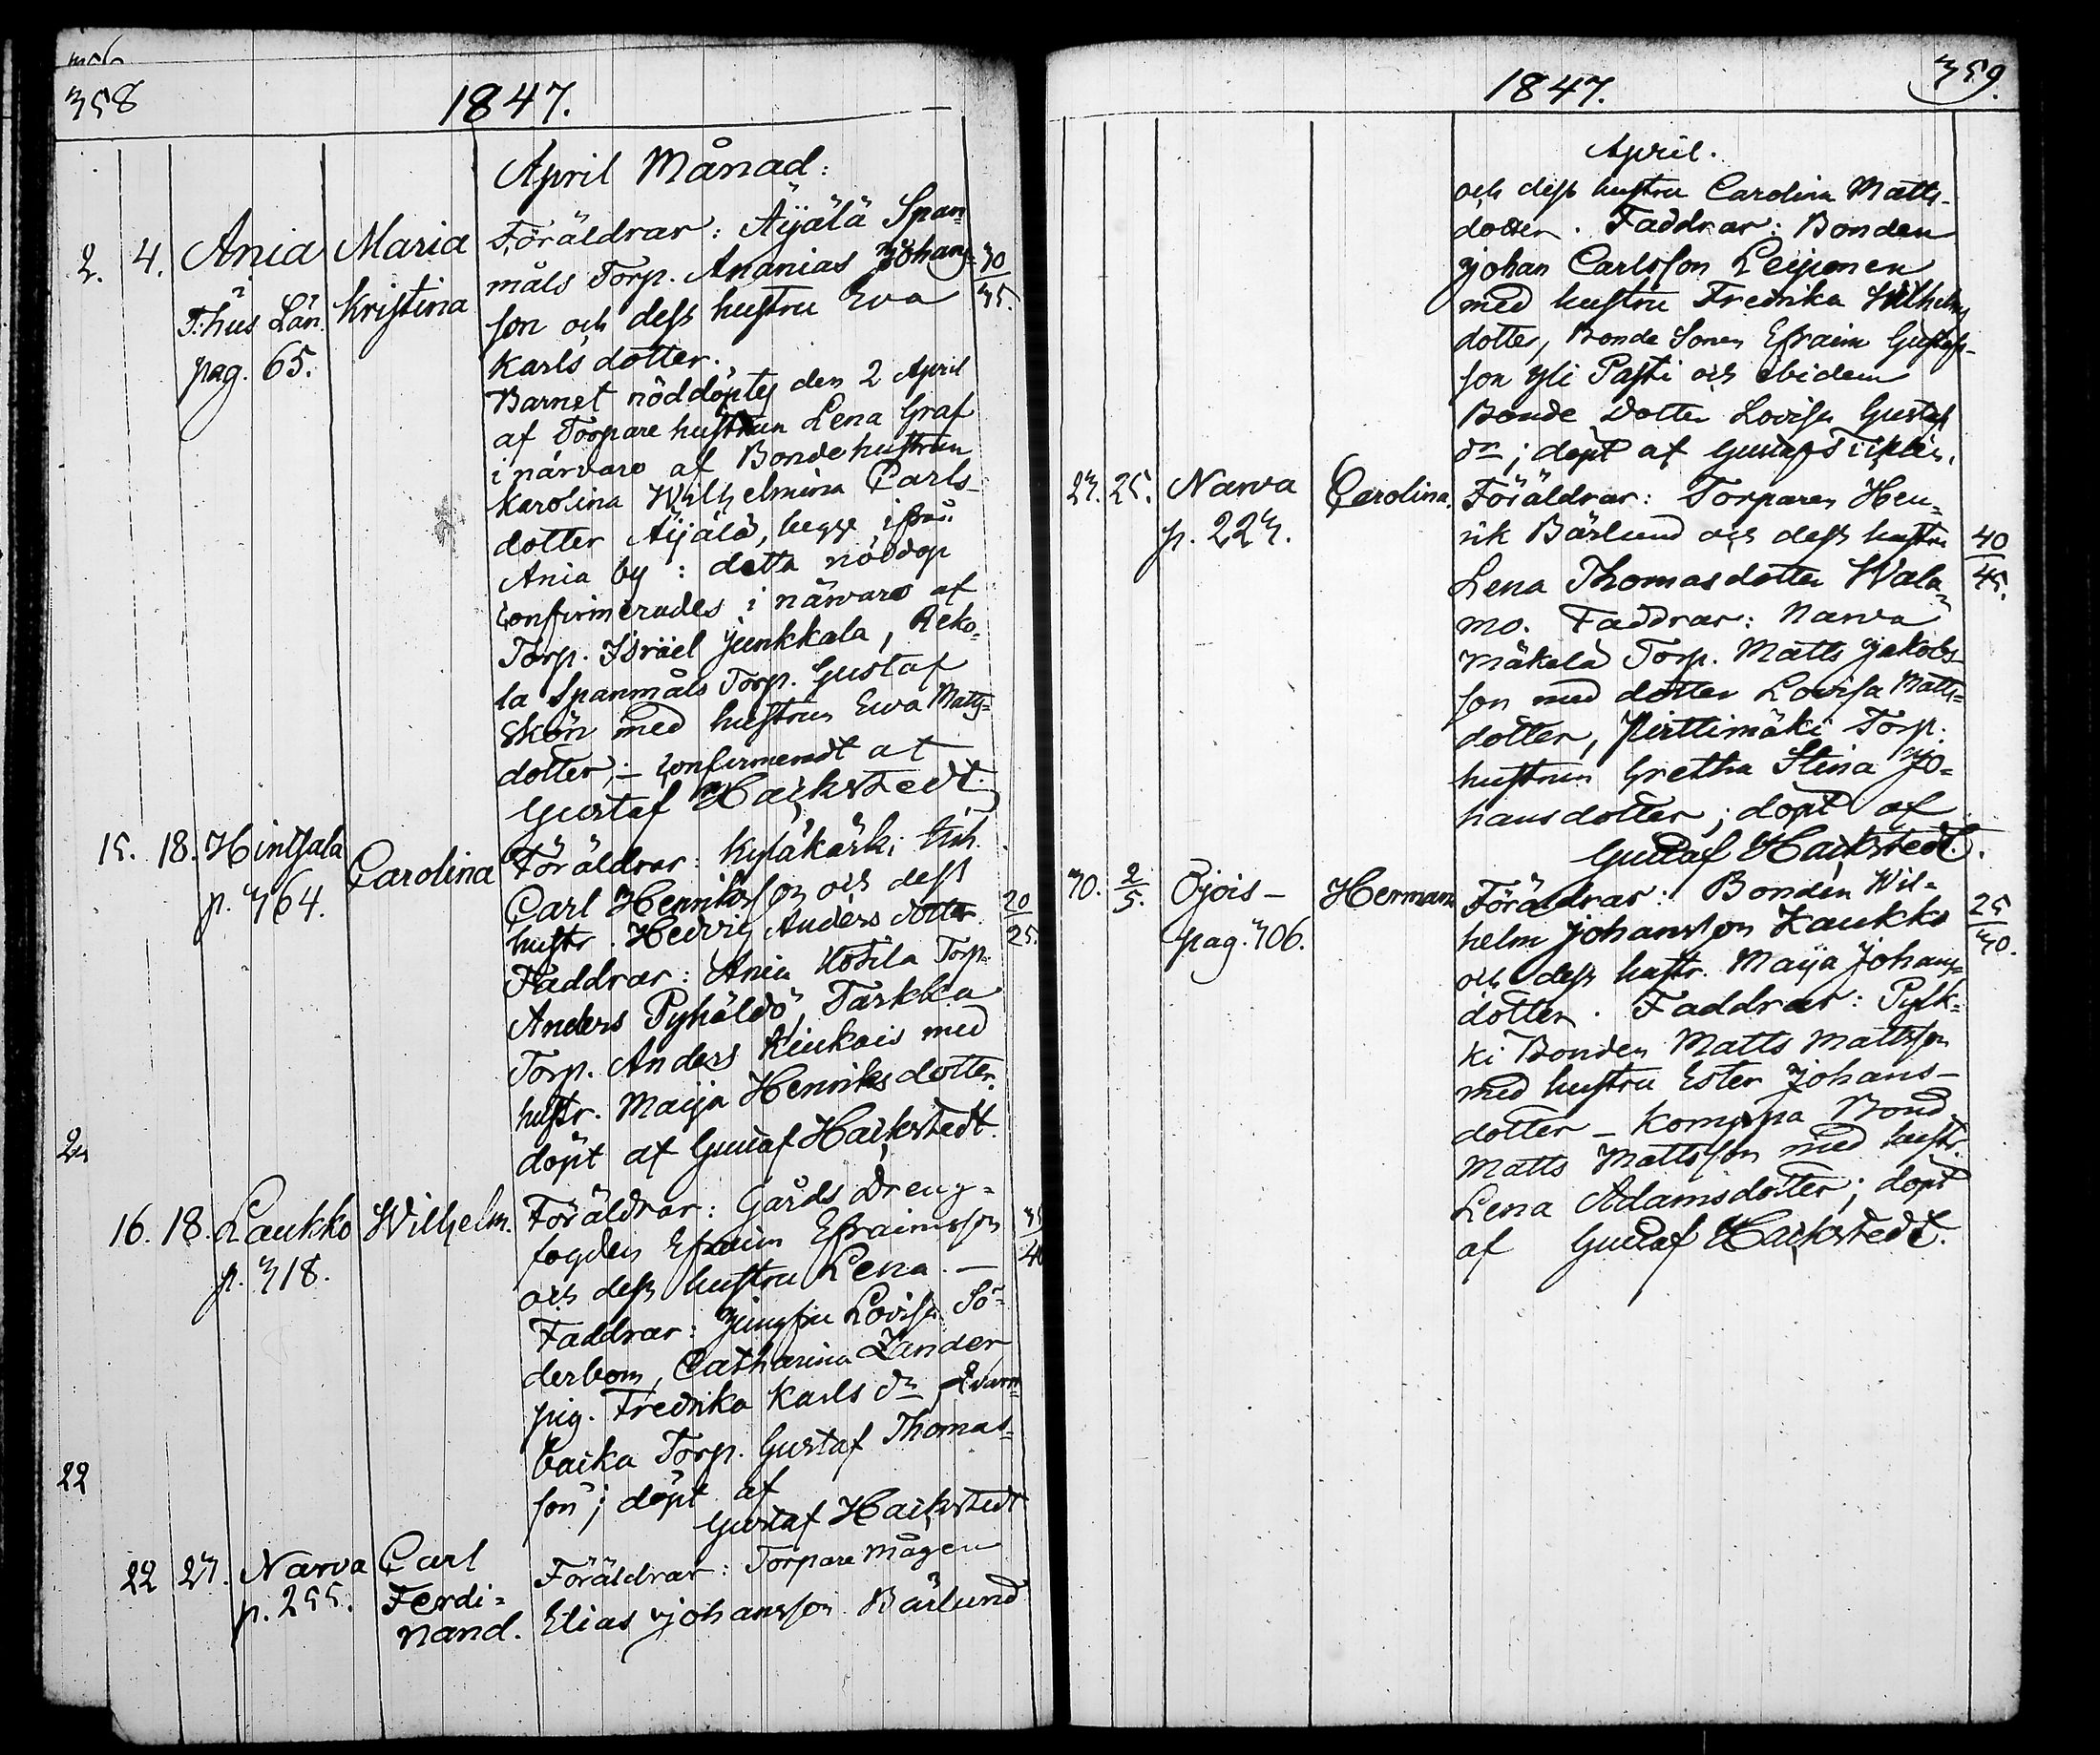 358
1847.
April Månad:
2. 4. Ania Maria Föräldrar: Äijälä Span-
måls Torp. Ananias Johans- 30
i T:hus Län. Kristina son och dess hustru Eva 35.
pag. 65. Karlsdotter.
Barnet nöddöptes den 2 April
af Torpare hustrun Lena Graf
i närvaro af Bondehustrun
Karolina Wilhelmina Carls-
dotter Äijälä, begge ifrån
Ania by: detta nöddop
confirmerades i närvaro af
Torp. Israel Junkkala, Reko-
la Spanmåls Torp. Gustaf
Skön med hustrun Ewa Matts-
dotter; – confirmeradt af
Gustaf Hackstedt.
15. 18. Hintsala Carolina Föräldrar: Kyläkärki
p. 364. Carl Henriksson och dess 20
hustr. Hedvig Anders dotter 25.
Faddrar: Ania Kotila Torp.
Anders Pyhäldö, Tarkka
Torp. Anders Kiukais med
hustr. Maija Henriksdotter.
döpt af Gustaf Hackstedt.
16. 18. Laukko Wilhelm. Föräldrar: Gårds Dreng- 35
p. 318. fogden Efraim Efraimsson 40
och dess hustru Lena. –
Faddrar: Jungfru Lovisa Sö-
derbom, Catharina Zander
pig. Fredrika Karls dr,
backa Torp. Gustaf Thomas-
22
son; döpt af
Gustaf Hackstedt
22 23. Narva Carl Föräldrar: Torpare mågen
p. 255. Ferdi- Elias Johansson Bärlund
nand.
359.
1847.
April.
och dess hustru Carolina Matts-
dotter. Faddrar: Bonden
Johan Carlsson Leiponen
med hustru Fredrika Wilhelms
dotter, Bonde Sonen Efraim Gustafs-
son Yli Pasti och ibidem
Bonde Dotter Lovisa Gustafs
dr; döpt af Gustaf
23. 25. Narva Carolina. Föräldrar: Torparen Hen-
p. 223. rik Bärlund och dess hustru 40
Lena Thomasdotter Wala- 45.
mo. Faddrar: Narva
Mäkelä Torp. Matts Jakobs-
son med dotter Lovisa Matts-
dotter, Pirttimäki Torp.
hustrun Gretha Stina Jo-
hansdotter; döpt af
Gustaf Hackstedt.
30. 2/5. Ojois – Herman Föräldrar: Bonden Wil- 25
pag. 306. helm Johansson Kaukko 30.
och dess hustr. Maija Johans-
dotter. Faddrar: Pulk-
ki Bonden Matts Mattsson
med hustru Ester Johans-
dotter – Komppa Bond
Matts Mattsson med hustr.
Lena Adamsdotter; döpt
af Gustaf Hackstedt.